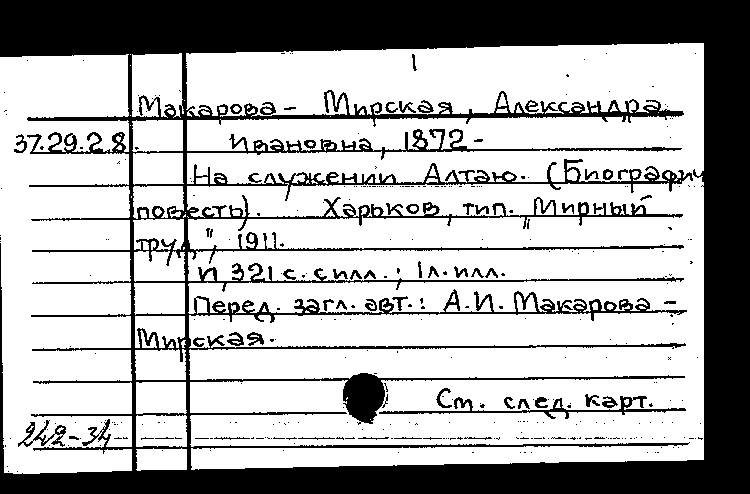 1
Макарова - Мирская, Александра
37.29.28. Ивановна, 1872 -
На служении Алтаю. (Биографич
повесть). Харьков, тип. „Мирный
труд", 1911.
II, 321 с. с илл.; 1 л. илл.
Перед. загл. авт.: А.И. Макарова -
Мирская.
См. след. карт.
242-34